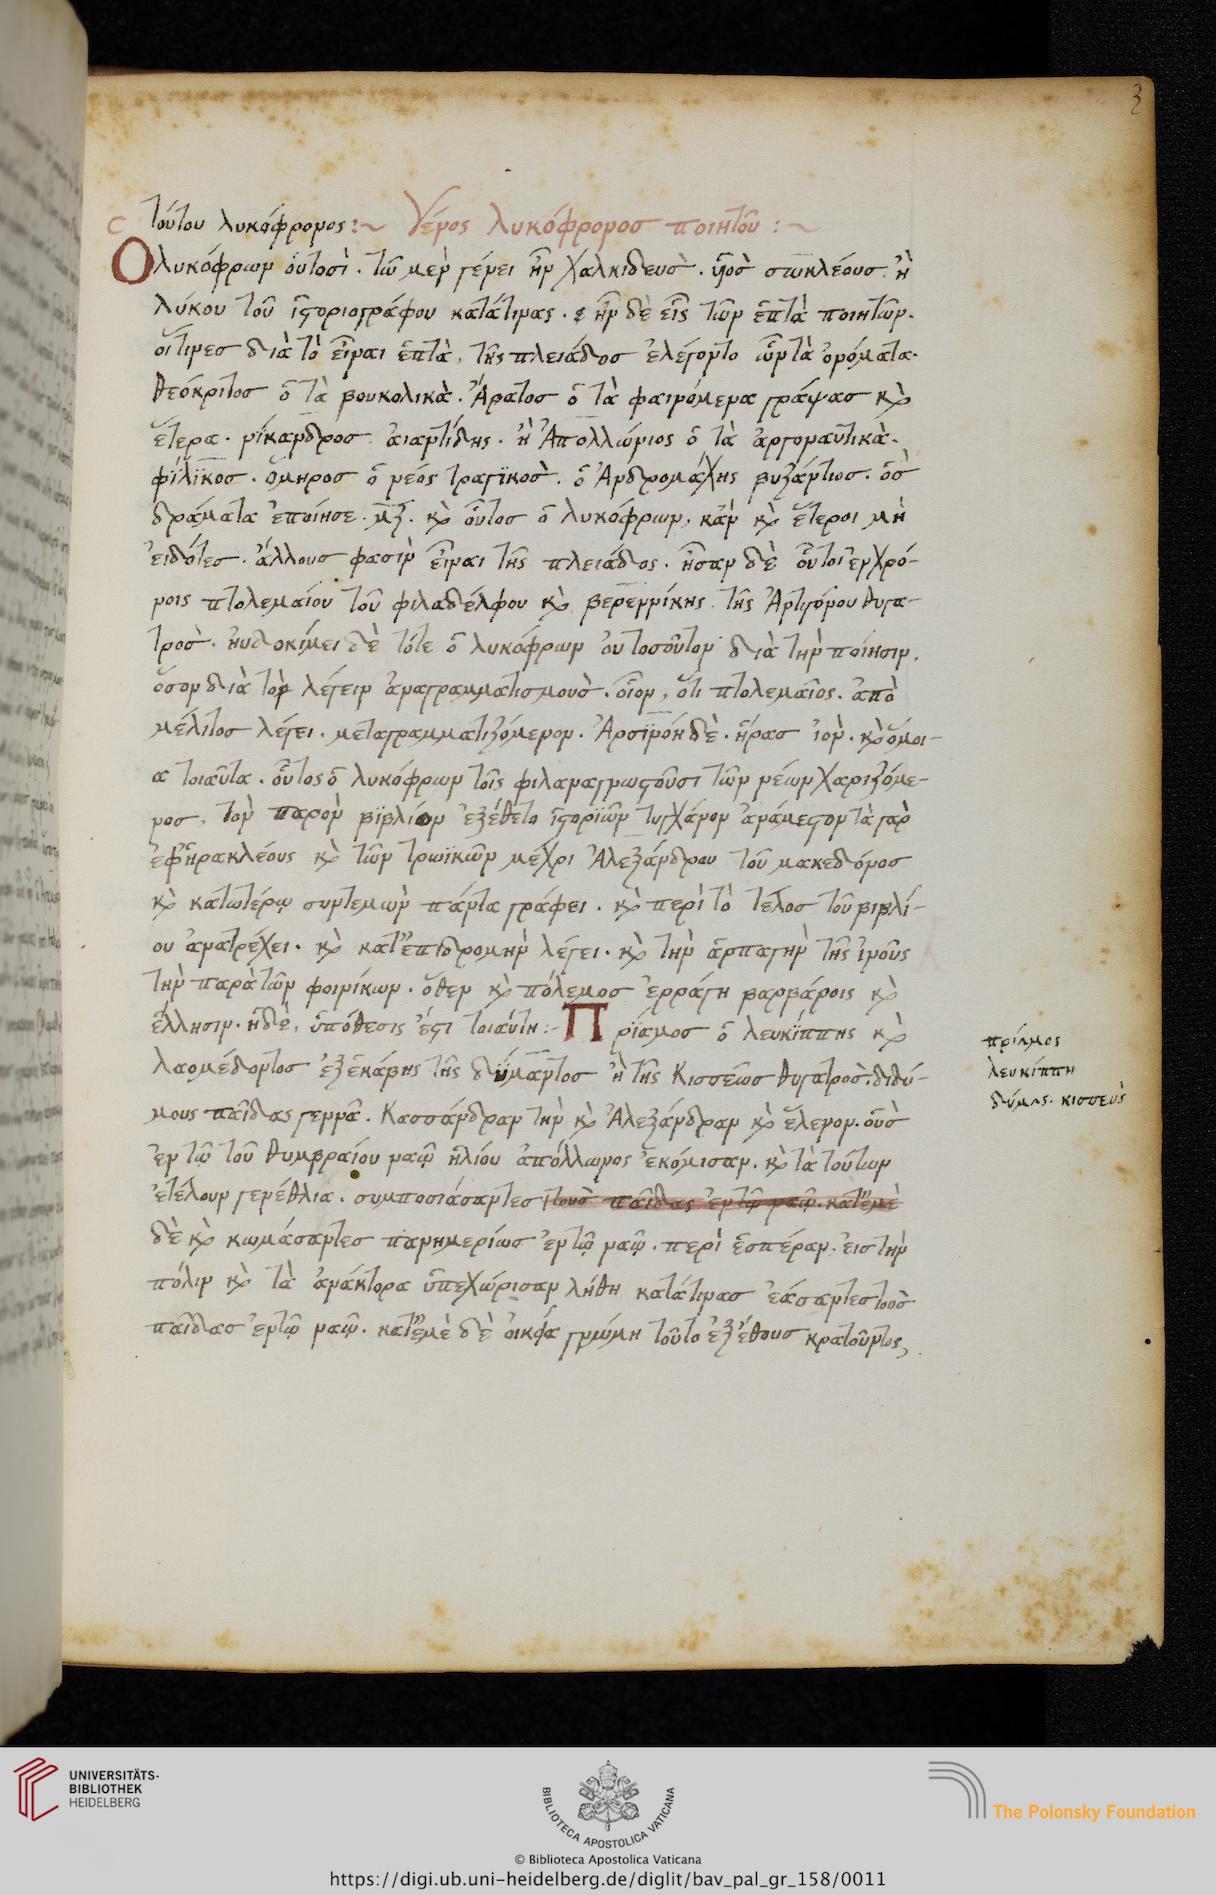 3
τούτου λυκόφρονος:~ Γένος λυκόφρονοσ ποιητοῦ :~
Ὁ λυκόφρων οὑτοσὶ . τῶ μὲν γένει ἦν χαλκιδευσ . ὑιὸσ σωκλέουσ . ἢ
λύκου τοῦ ἱστοριογράφου κατάτινας . ἦν δὲ εἷς τῶν ἑπτὰ ποιητῶν .
οἵτινεσ διὰ τὸ εἶναι ἑπτὰ , τῆς πλειάδοσ ἐλέγοντο ὧν τὰ ὀνόματα .
θεόκριτοσ ὁ τὰ βουκολικὰ . Ἄρατοσ ὁ τὰ φαινόμενα γράψασ κὶ
ἕτερα . νίκανδροσ . ἀιαντίδης . ἢ Ἀπολλώνιος ὁ τὰ ἀργοναυτικὰ .
φίλϊκος . ὅμηροσ ὁ νέος τραγϊκοσ . ὁ Ἀνδρομάχης βυζάντιοσ . ὃσ
δράματα ἐποίησε . νζ . κὶ οὗτοσ ὁ λυκόφρων , κἂν κὶ ἕτεροι μὴ
ἐιδότεσ . ἄλλουσ φασὶν εἶναι τῆς πλειάδος . ἦσαν δὲ οὗτοι ἐν χρό-
νοις πτολεμαίου τοῦ φιλαδέλφου κὶ βερεννίκης τῆς Ἀντιγόνου θυγα-
τροσ . ἠυδοκίμει δὲ τότε ὁ λυκόφρων ου τοσοῦτον διὰ τὴν ποίησιν .
ὅσον διὰ τὸν λέγειν ἀναγραμματισμουσ . οἷον , ὅτι πτολεμαῖος . ἀπὸ
μέλιτοσ λέγει . μεταγραμματιζόμενον . Ἀρσϊνόη δὲ . ἥρασ ἰον . κὶ ὅμοι-
α τοιαῦτα . οὗτος ὁ λυκόφρων τοῖς φιλαναγνωστοῦσι τῶν νέων χαριζόμε-
νοσ , τὸν παρον βϊβλίον ἐξέθετο ἱστορϊῶν τυγχάνον ἀνάμεστον τὰ γαρ
ἐφ ἡρακλέους κὶ τῶν τρωϊκῶν μέχρι Ἀλεξάνδρου τοῦ μακεδόνοσ
κὶ κατωτέρω συντεμων πάντα γράφει . κὶ περὶ τὸ τέλοσ τοῦ βιβλί-
ου ἀνατρέχει . κὶ κατ ἐπιδρομην λέγει . κὶ τὴν ἁρπαγὴν τῆς ἰνοῦς
τὴν παρὰ τῶν φοινίκων . ὅθεν κὶ πόλεμοσ ἐρράγη βαρβάροις κὶ
ἕλλησιν . ἡ δὲ , ὑπόθεσις ἐστι τοιαύτη :- Πρΐαμοσ ὁ λευκΐππης κὶ
λαομέδοντοσ ἐξ ἑκάβης τῆς δΰμαντοσ ἢ τῆς Κισσέωσ θυγατροσ . διδύ-
μους παῖδας γεννᾶ . Κασσάνδραν τὴν κὶ Ἀλεξάνδραν κὶ ἕλενον . οὓσ
ἐν τῶ τοῦ θυμβραίου ναῶ ἡλίου ἀπόλλωνος ἐκόμισαν . κὶ τὰ τούτων
ἐτέλουν γενέθλια . συμποσιάσαντεσ τοὺσ παῖδας ἐν τῶ ναῶ . κατ ἐμὲ
δὲ κὶ κωμάσαντεσ πανημερίωσ ἐν τῶ ναῶ . περὶ ἑσπέραν . ἐισ τὴν
πόλιν κὶ τὰ ἀνάκτορα ὑπεχώρισαν λήθη κατάτινασ ἐάσαντεσ τοὺσ
παῖδασ ἐν τῶ ναῶ . κατ ἐμὲ δὲ ὀικεία γνώμη τοῦτο ἐξ ἔθουσ κρατοῦντος ,
πρίαμος
λευκίππη
δύμας . κισσευς
UNIVERSITÄTS-
BIBLIOTHEK
HEIDELBERG
BIBLIOTECA APOSTOLICA VATICANA
© Biblioteca Apostolica Vaticana
The Polonsky Foundation
https://digi.ub.uni-heidelberg.de/diglit/bav_pal_gr_158/0011